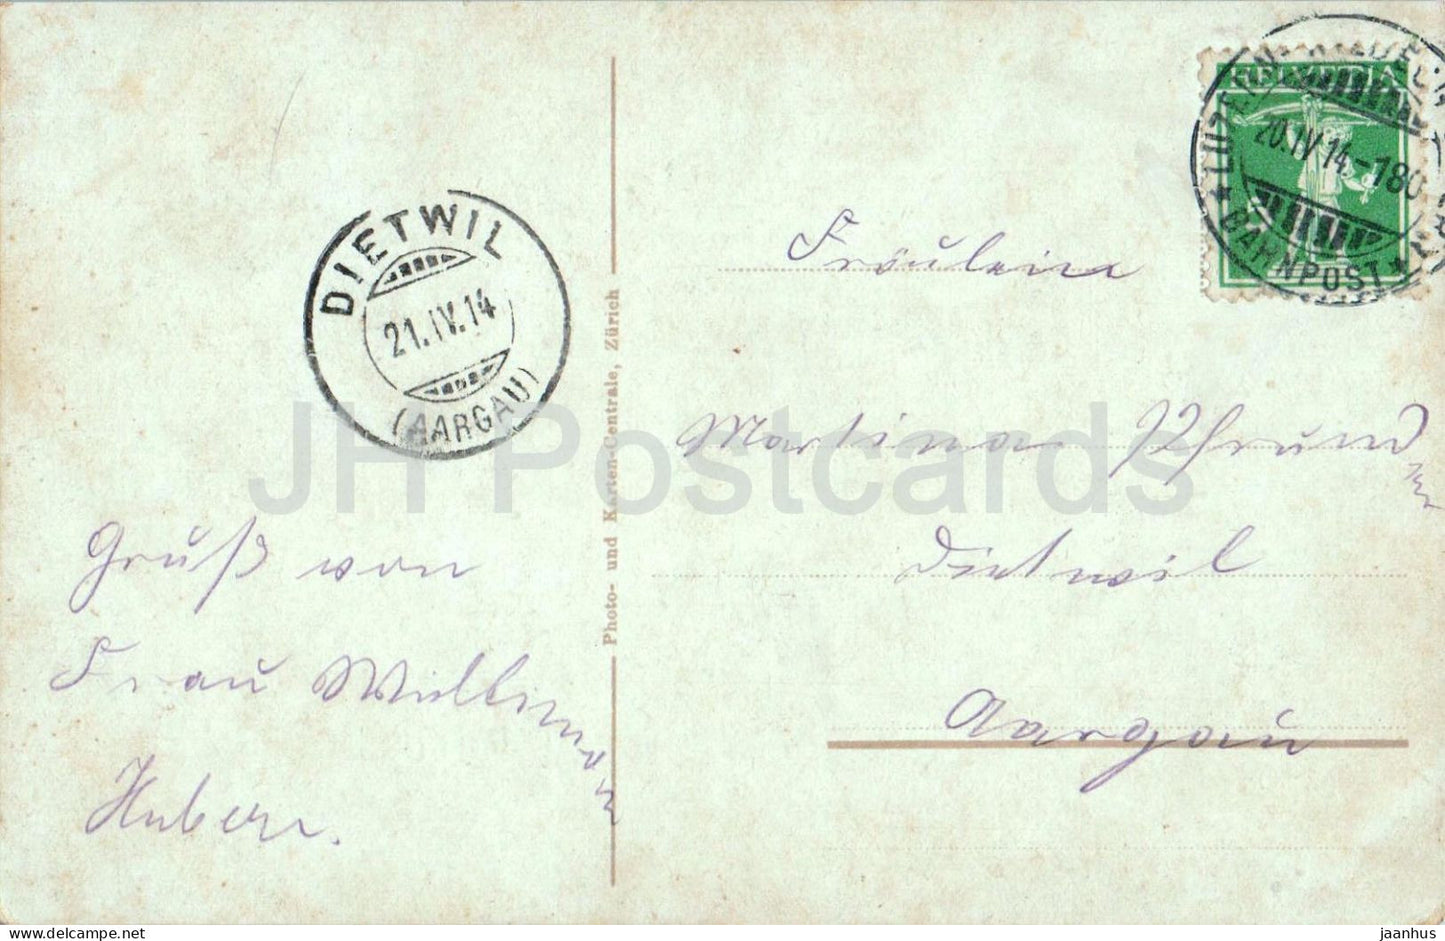 HELVETIA
20.IV.14.-180
BAHNPOST
DIETWIL
21.IV.14
(AARGAU)
Photo- und Karten-Centrale, Zürich
Fräulein
Martina
Dietwil
Aargau
Gruß von
Frau
Huber.
JH Postcards
delcampe.net
jaanhus